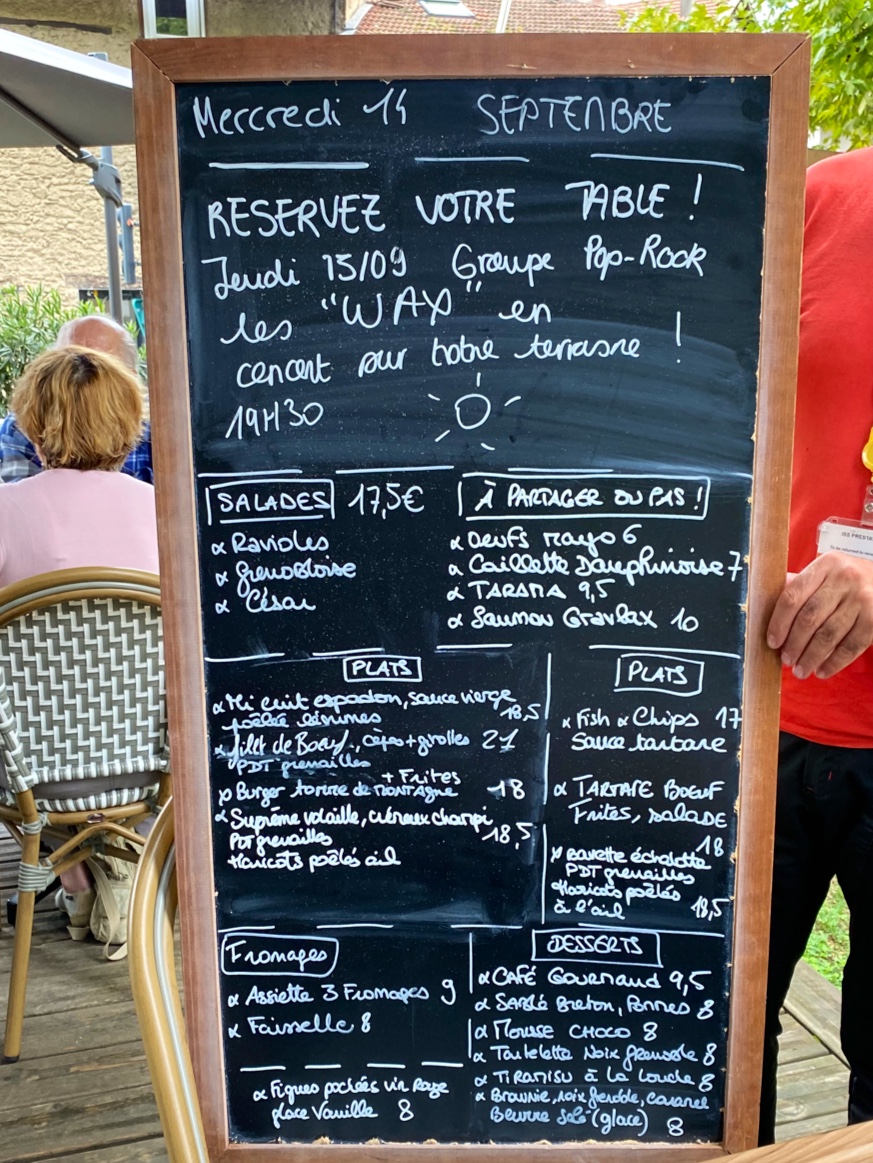 Mercredi 14 SEPTEMBRE
RESERVEZ VOTRE TABLE !
Jeudi 15/09 Groupe Pop-Rock
les "WAX" en
concert sur notre terrasse !
19H30
SALADES 17,5€
α Ravioles
α grenobloise
α César
À PARTAGER OU PAS !
α Oeufs mayo 6
α Caillette Dauphinoise 7
α TARAMA 9,5
α Saumon Gravlax 10
PLATS
α Mi cuit espadon, sauce vierge
poêlée légumes 18,5
α filet de Boeuf, cèpes + girolles 21
PDT grenailles
+ Frites
α Burger tomme de MONTAGNE 18
α Suprême volaille, crémeux champi
PDT grenailles 18,5
Haricots poêlés ail
PLATS
α Fish & Chips 17
Sauce tartare
α TARTARE BOEUF
Frites, SALADE
18
α Bavette échalotte
PDT grenailles
Haricots poêlés
à l'ail 18,5
Fromages
α Assiette 3 Fromages 9
α Faisselle 8
α Figues pochées vin rouge
glace Vanille 8
DESSERTS
α CAFÉ Gourmand 9,5
α Sablé Breton, Pommes 8
α Mousse CHOCO 8
α Tartelette Noix grenoble 8
α TIRAMISU à la Louche 8
α Brownie, noix grenoble, caramel
Beurre salé (glace) 8
ISS PRESTA